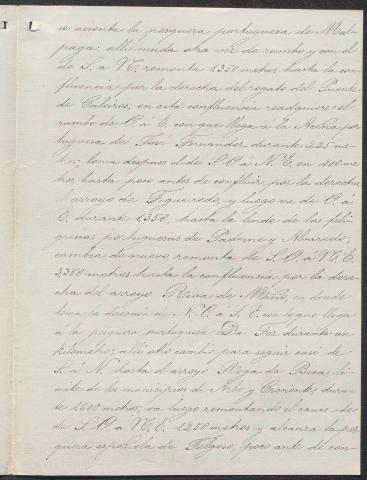 se asienta la pesquera portuguesa de Mal-
paga; alli muda otra vez de rumbo y con el
de S. a N. remonta 1.350 metros hasta la con-
fluencia por la derecha del regato del Puente
de Caleiros; en esta confluencia readquiere el
rumbo de O. á E. con que llega á la Aceña por-
tuguesa de José Fernandez durante 225 me-
tros; toma despues el de S.O. á N.E. en 410 me-
tros, hasta poco antes de confluir, por la derecha
el arroyo de Figueiredo, y luego va de O. á
E. durante 1.350, hasta la linde de las feli-
gresias portuguesas de Paderne y Alvaredo;
cambia de nuevo remonta de S.O. á N.E.
3,350 metros hasta la confluencia por la dere-
cha del arroyo de Mouro, en donde
toma la direccion de N.O. á S.E. con la que llega
á la pesquera portuguesa Da Foz durante un
kilometro; alli otro cambio para seguir casi de
S. a N. hasta el arroyo Rega da Bica, lí-
mite de los municipios de Arbo y Creciente, duran-
te 2.600 metros; va luego remontando el cauce de
de S.O. á N.E. 1.250 metros y alcanza la pes-
quera española de Folgoso, poco ante de con-